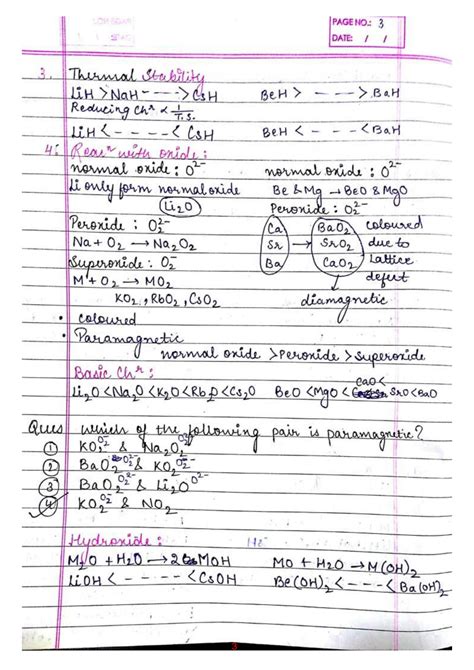 PAGE NO.: 3
DATE: / /
3. Thermal Stability
LiH > NaH - - - -> CsH BeH > - - - -> BaH
Reducing Chʳ ∝ 1/T.S.
LiH < - - - - < CsH BeH < - - - < BaH
4. Reacⁿ with oxide:
normal oxide : O²⁻ normal oxide : O²⁻
Li only form normal oxide Be & Mg → BeO & MgO
Li₂O Peroxide : O₂²⁻
Peroxide : O₂²⁻ Ca BaO₂ coloured
Na + O₂ → Na₂O₂ Sr → SrO₂ due to
Superoxide : O₂⁻ Ba CaO₂ Lattice
M + O₂ → MO₂ defect
KO₂, RbO₂, CsO₂ diamagnetic
• coloured
• Paramagnetic
normal oxide > Peroxide > Superoxide
Basic Chʳ:
Li₂O < Na₂O < K₂O < Rb₂O < Cs₂O BeO < MgO < CaO < SrO < BaO
Ques which of the following pair is paramagnetic?
① KO₂ O₂⁻ & Na₂O₂ O₂²⁻
② BaO₂ O₂²⁻ & KO₂ O₂⁻
③ BaO₂ O₂²⁻ & Li₂O O²⁻
④ KO₂ O₂⁻ & NO₂
Hydroxide :
M₂O + H₂O → 2 MOH MO + H₂O → M(OH)₂
LiOH < - - - - < CsOH Be(OH)₂ < - - - < Ba(OH)₂
3